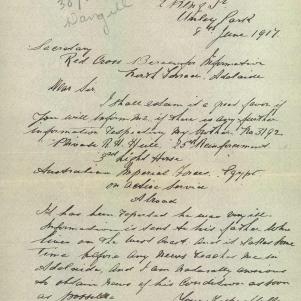 30/
2 King St
Unley Park
8th June 1917.
Secretary
Red Cross Bureau for Information
North Terrace, Adelaide
Dear Sir
I shall esteem it a great favor if
you will inform me if there is any further
information respecting my brother No 3192
Private R. H. Yuill. 25th Reinforcement
3rd Light Horse
Australian Imperial Forces. Egypt
on Active Service
Abroad
It has been reported he was very ill.
Information is sent to his father who
lives on the West Coast. And it takes some
time before any news reaches me in
Adelaide, and I am naturally anxious
to obtain news of his condition as soon
as possible